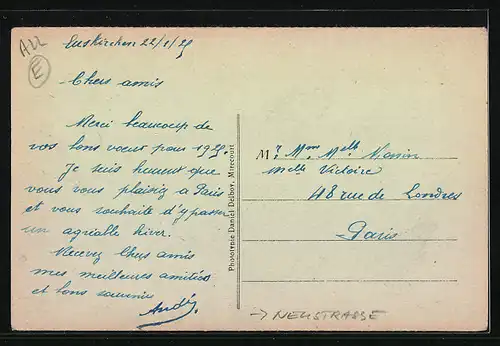 ALL
E
Euskirchen 22/1/25
Chers amis
Merci beaucoup de
vos bons vœux pour 1925.
Je suis heureux que
vous vous plaisiez à Paris
et vous souhaite d'y passer
un agréable hiver.
Recevez chers amis
mes meilleures amitiés
et bons souvenirs
André
Phototypie Daniel Delboy, Mirecourt
Mr Mme Melle
Melle Victoire
48 rue de Londres
Paris
→ NEUSTRASSE